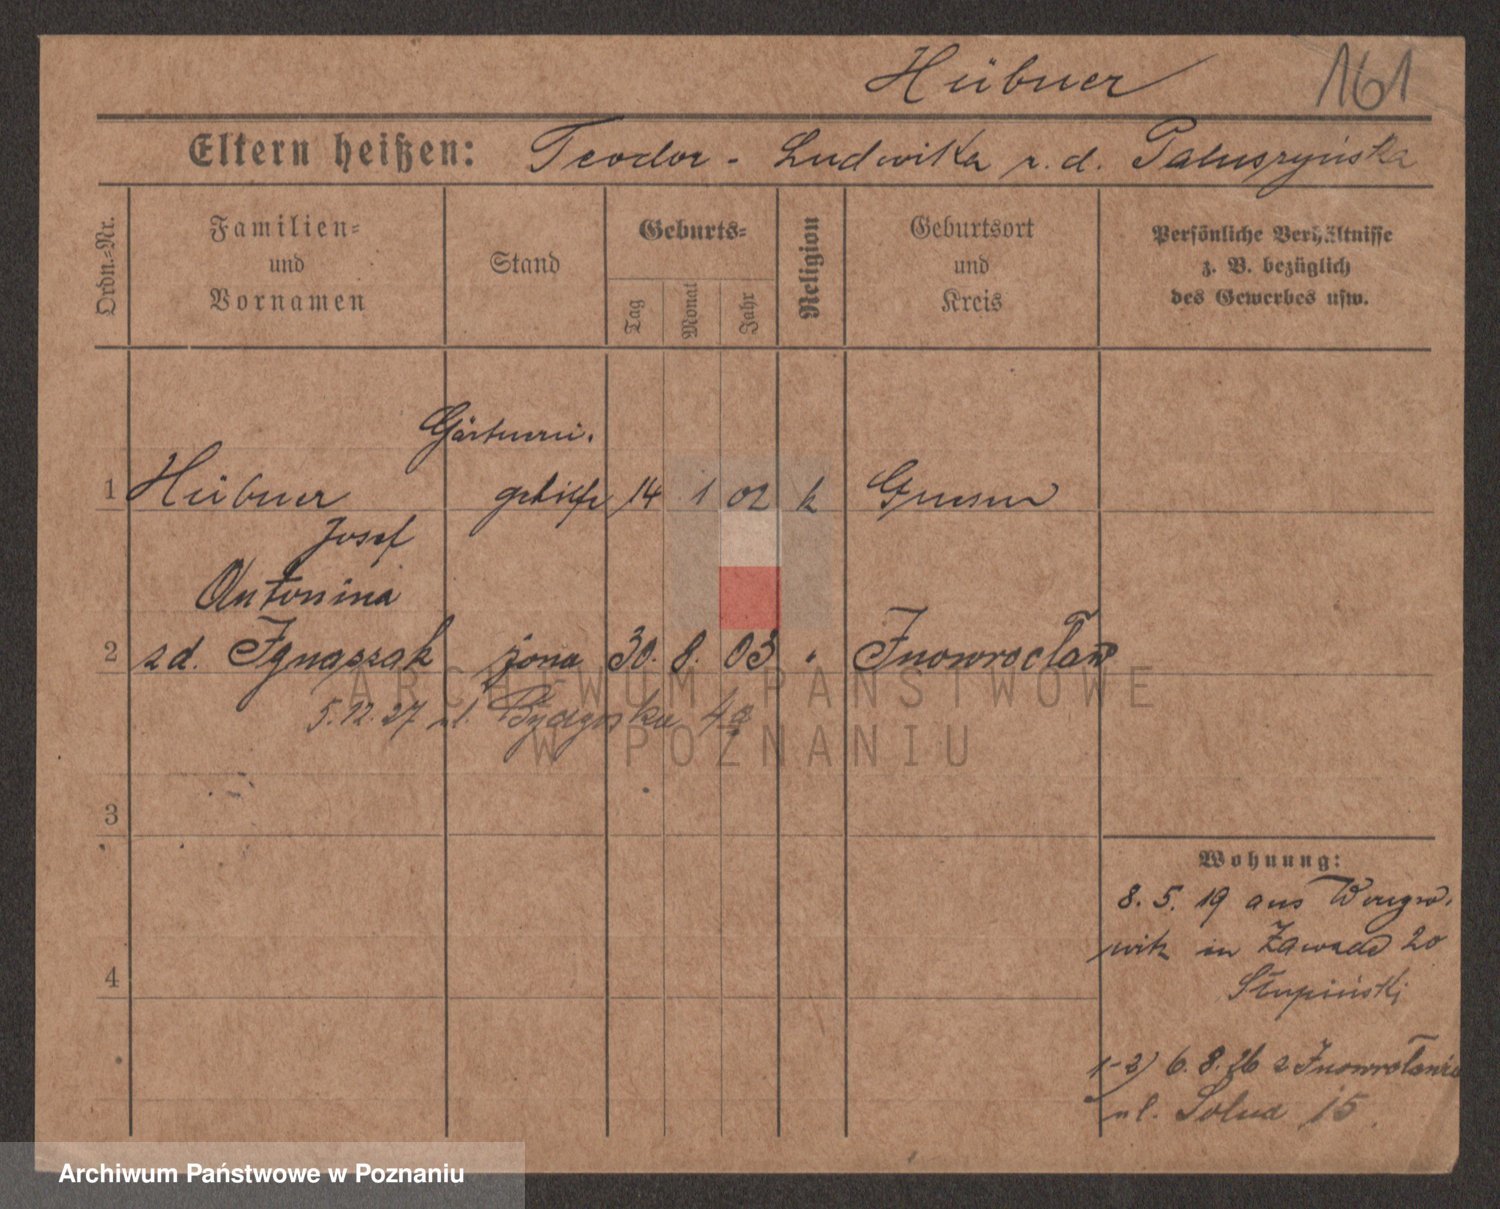 Hübner 161
Eltern heißen: Teodor - Ludwika r. d. Paluszyńska
Ordn.=Nr.
Familien=
und
Vornamen
Stand
Geburts=
Tag
Monat
Jahr
Religion
Geburtsort
und
Kreis
Persönliche Verhältnisse
z. B. bezüglich
des Gewerbes usw.
Gärtnerei.
1 Hübner gehilfe 14 1 02 k Gnesen
Josef
Antonina
2 zd. Ignaszak żona 30. 8. 03 " Inowrocław
5.12.27 ul. Bydgoska 4a
3
4
Wohnung:
8. 5. 19 aus
witz in Zawade 20
Słupiński
1-2) 6.8.26 z Inowrocławia
ul. Solna 15
ARCHIWUM PAŃSTWOWE
W POZNANIU
Archiwum Państwowe w Poznaniu